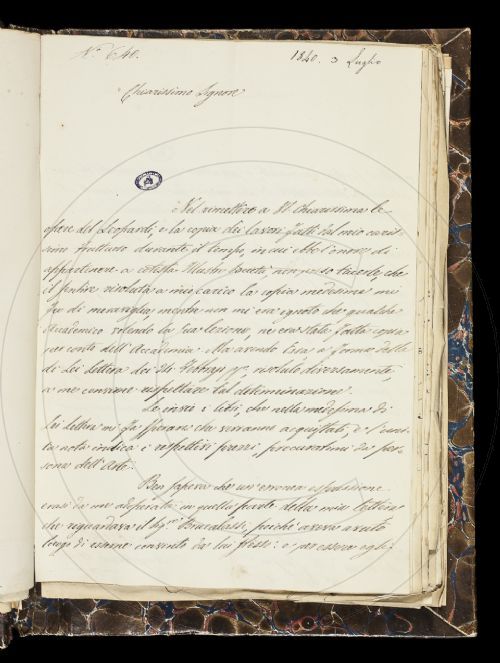 N.° 640.
1840. 3 Luglio
Chiarissimo Signore
Nel rimettere a V. Chiarissima le
opere del Leopardi, e la copia dei lavori fatti dal mio
durante il tempo, in cui ebbe l'onore di
appartenere a cotesta Illustre Società, non posso tacerle, che
il sentire risoluta a mio carico la copia medesima mi
fu di maraviglia, mentre non mi era ignoto che qualche
Accademico volendo la sua lezione, ne era stata fatta copia
per conto dell'Accademia. Ma avendo Essa, a forma della
di Lei lettera dei 26 risoluto diversamente,
a me conviene rispettare tal determinazione.
Le invio i libri, che nella medesima di
Lei lettera mi fa saranno acquistati, e
nota indica i rispettivi prezzi procuratimi da per-
sona dell'Arte.
Ben sapeva che un'erronea espressione
erasi da me adoperata in quella parte della mia lettera
che riguardava il Sig.r Bracalassi, poichè aveva avuto
luogo di esserne convinto da lui stesso: e per essere egli